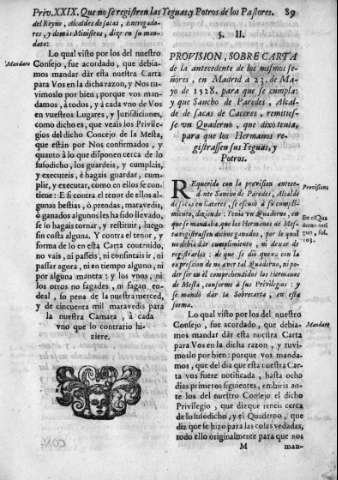 Priv. XXIX. Que no se registren las Yeguas, y Potros de los Pastores. 89
del Reyno, Alcaldes de sacas, entregadores, y demàs Ministros, dize en su mandato:
Mandato
Lo qual visto por los del nuestro
Consejo, fue acordado, que debiamos
mandar dàr esta nuestra Carta
para Vos en la dicha razon, y Nos tuvimoslo
por bien; porque vos mandamos,
à todos, y à cada vno de Vos
en vuestros Lugares, y Jurisdiciones,
como dicho es, que veais los Privilegios
del dicho Concejo de la Mesta,
que estàn por Nos confirmados, y
quanto à lo que disponen cerca de lo
susodicho, los guardeis, y cumplais,
y executeis, è hagais guardar, cumplir,
y executar, como en ellos se contiene:
E si contra el tenor de ellos algunas
bestias, ò prendas, maravedis
ò ganados algunos les ha sido llevado,
se lo hagais tornar, y restituir, luego
sin costa alguna. Y contra el tenor, y
forma de lo en esta Carta contenido,
no vais, ni passeis, ni consintais ir, ni
passar agora, ni en tiempo alguno, ni
por alguna manera: y los vnos, ni
los otros no fagades, ni fagan endeal,
so pena de la nuestra merced,
y de cincuenta mil maravedis para
la nuestra Camara, à cada
vno que lo contrario hiziere.
§. II.
PROVISION, SOBRE CARTA
de la antecedente de los mismos señores,
en Madrid à 23. de Mayo
de 1528. para que se cumpla:
y que Sancho de Paredes, Alcalde
de Sacas de Caceres, remitiesse
vn Quaderno, que dixo tenia,
para que los Hermanos registrassen
sus Yeguas, y
Potros.
Provision.
REquerido con la provision antecedente
Sancho de Paredes, Alcalde
de Sacas en Caceres, se escusò de su cumplimiento,
diziendo: Tenia vn Quaderno, en
que se mandaba que los Hermanos de Mesta
registrassen
no debia dàr cumplimiento, ni dexar de
registrarlas: de que se diò quexa con la
expression de no aver tal Quaderno, ni poder
ser en èl comprehendidos los Hermanos
de Mesta, conforme à sus Privilegios: y
se mandò dàr la Sobrecarta, en esta
forma.
Mandato
Lo qual visto por los del nuestro
Consejo, fue acordado, que debiamos
mandar dàr esta nuestra Carta
para Vos en la dicha razon, y tuvimoslo
por bien: porque vos mandamos,
que del dia que esta nuestra Carta
vos fuere notificada, hasta ocho
dias primeros siguientes, embieis ante
los del nuestro Consejo el dicho
Privilegio, que dizque teneis cerca
de lo susodicho, y el Quaderno, que
diz que se hizo para las cosas vedadas,
todo ello originalmente para que nos
M man-